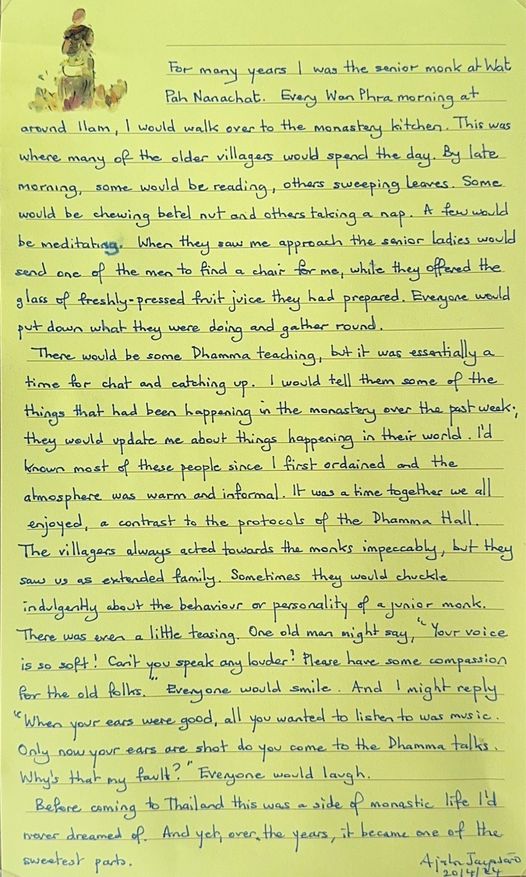 For many years I was the senior monk at Wat
Pah Nanachat. Every Wan Phra morning at
around 11am, I would walk over to the monastery kitchen. This was
where many of the older villagers would spend the day. By late
morning, some would be reading, others sweeping leaves. Some
would be chewing betel nut and others taking a nap. A few would
be meditating. When they saw me approach the senior ladies would
send one of the men to find a chair for me, while they offered the
glass of freshly-pressed fruit juice they had prepared. Everyone would
put down what they were doing and gather round.
There would be some Dhamma teaching, but it was essentially a
time for chat and catching up. I would tell them some of the
things that had been happening in the monastery over the past week;
they would update me about things happening in their world. I'd
known most of these people since I first ordained and the
atmosphere was warm and informal. It was a time together we all
enjoyed, a contrast to the protocols of the Dhamma Hall.
The villagers always acted towards the monks impeccably, but they
saw us as extended family. Sometimes they would chuckle
indulgently about the behaviour or personality of a junior monk.
There was even a little teasing. One old man might say, "Your voice
is so soft! Can't you speak any louder? Please have some compassion
for the old folks." Everyone would smile. And I might reply
"When your ears were good, all you wanted to listen to was music.
Only now your ears are shot do you come to the Dhamma talks.
Why's that my fault?" Everyone would laugh.
Before coming to Thailand this was a side of monastic life I'd
never dreamed of. And yet, over the years, it became one of the
sweetest parts.
Ajahn Jayasāro
20/4/24